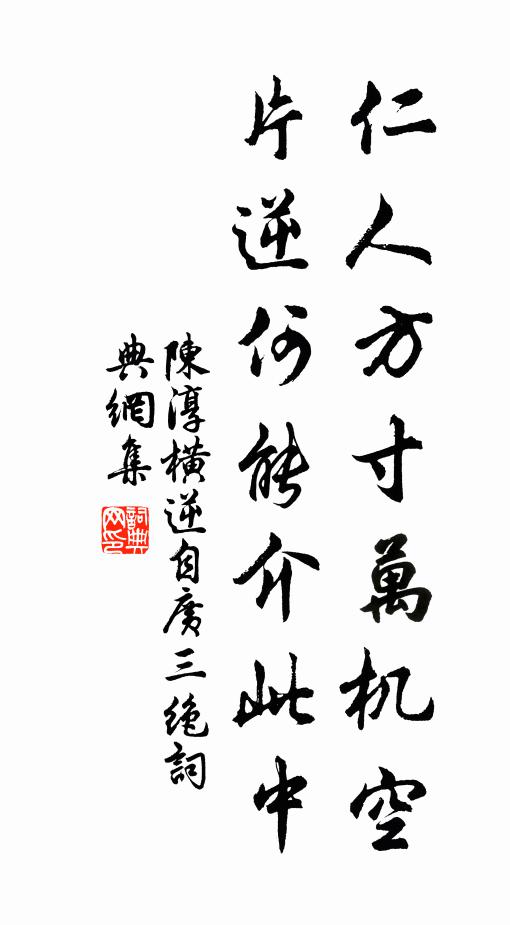 仁人方寸萬机空
片逆何能介此中
陳淳橫逆自廣三絶詞
典網集
詞典
网印